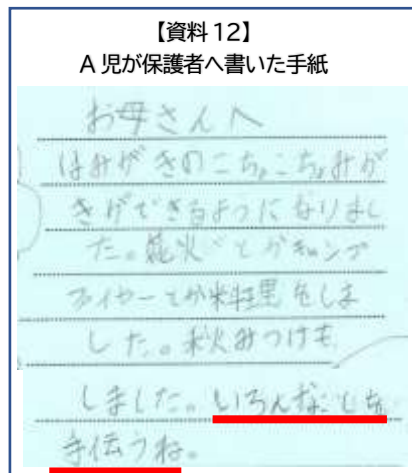 【資料12】
A児が保護者へ書いた手紙
お母さんへ
はみがきのこちょこちょみが
きができるようになりまし
た。
とかキャンプ
ファイヤーとか
をしま
した。秋みつけも
しました。いろんなことを
手伝うね。